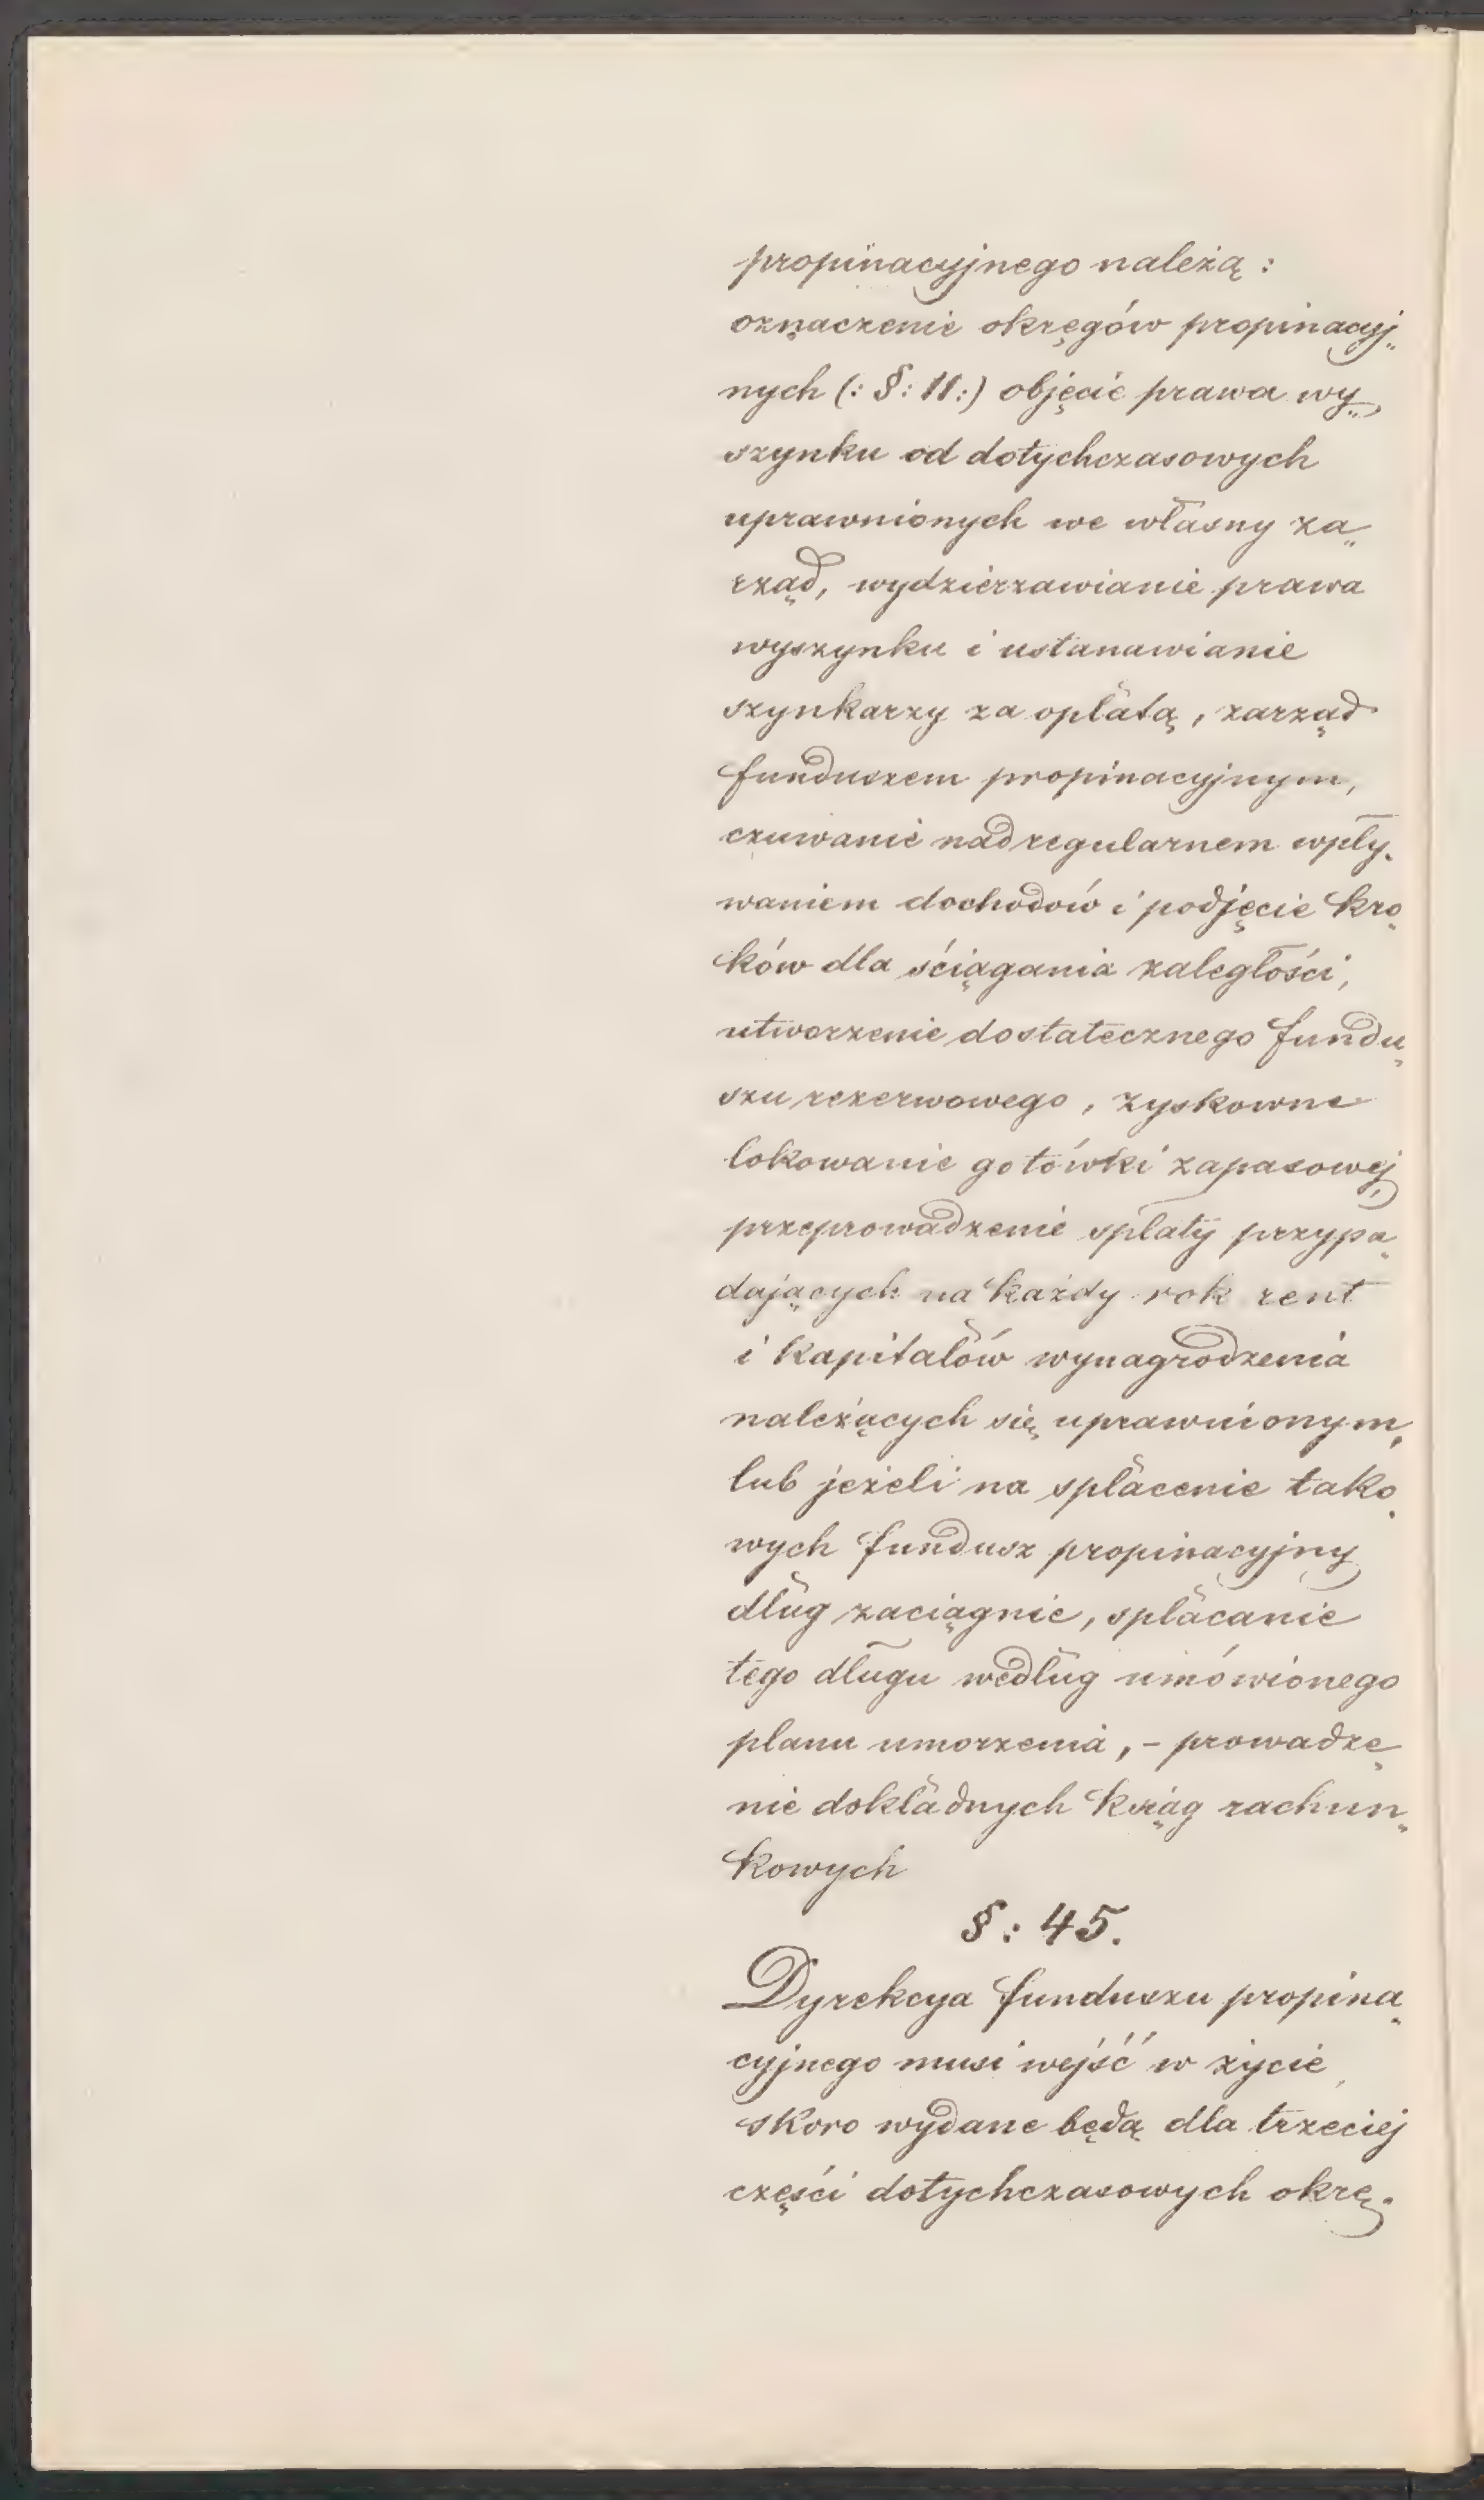 propinacyjnego należą :
oznaczenie okręgów propinacyj„
nych (: §: 11:) objęcie prawa wy„
szynku od dotychczasowych
uprawnionych we własny za„
rząd, wydzierzawianie prawa
wyszynku i ustanawianie
szynkarzy za opłatą, zarząd
funduszem propinacyjnym,
czuwanie nad regularnem wpły„
waniem dochodów i podjęcie kro„
ków dla ściągania zaległości,
utworzenie dostatecznego fundu„
szu rezerwowego, zyskowne
lokowanie gotówki zapasowej,
przeprowadzenie spłaty przypa„
dających na każdy rok rent
i kapitałów wynagrodzenia
należących się uprawnionym,
lub jeżeli na spłacenie tako„
wych fundusz propinacyjny
dług zaciągnie, spłacanie
tego długu według umówionego
planu umorzenia, - prowadze„
nie dokładnych ksiąg rachun„
kowych
§: 45.
Dyrekcya funduszu propina„
cyjnego musi wejść w życie,
skoro wydane będą dla trzeciej
części dotychczasowych okrę„